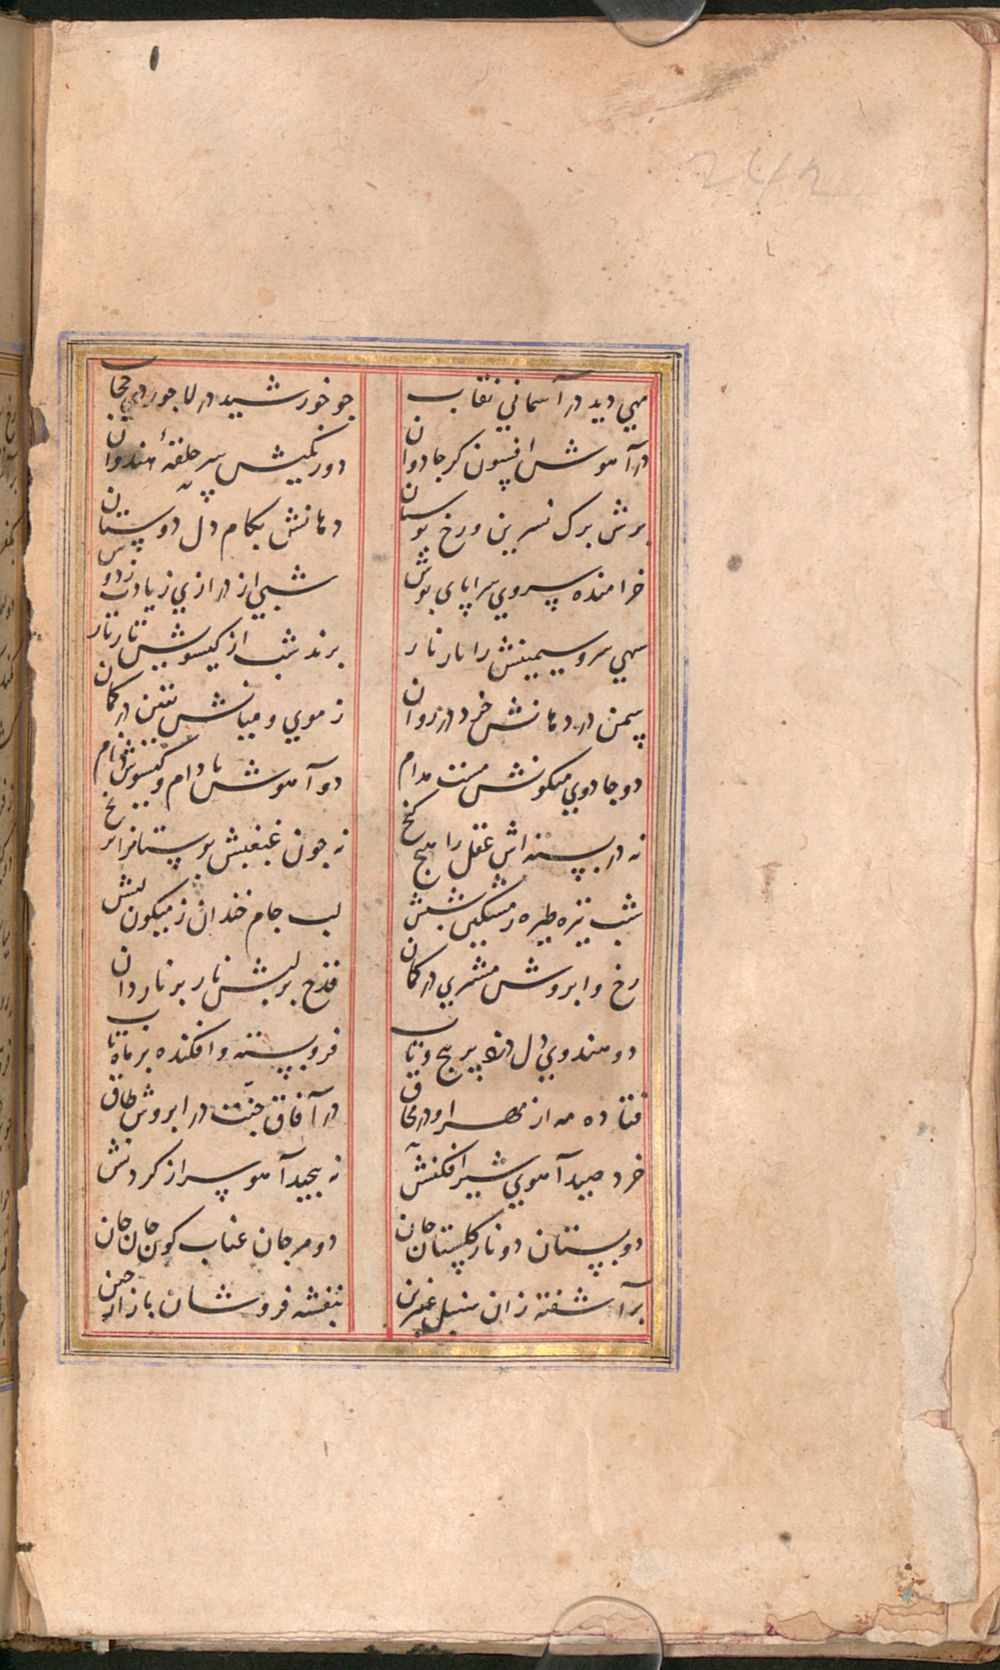 ۱
242
مهی دید در آسمانی نقاب
جو خورشید در لاجوردی حجاب
در آهوش افسون کر جادوان
دو زنکیش سر حلقهٔ هندوان
برش برک نسرین و رخ بوستان
دهانش بکام دل دوستان
خرامنده سروی سراپای بوش
شبی از درازی زیادت ز دوش
سهی سرو سیمینش را نار نار
برند شب از کیسویش تار تار
سخن در دهانش خرد در روان
ز موی و میانش تنش در کمان
دو جادوی میکونش مست مدام
دو آهوش بادام و کیسوش دام
نه در بسته اش عقل را هیچ کنج
نه جون غبغبش بوستانرا ترنج
شب تیره طیره ز مشکین شبش
لب جام خندان ز میکون لبش
رخ و ابروش مشتری در کمان
قدح بر لبش نار بر ناردان
دو هندوی دل دزد پر بیج و تاب
فروبسته وافکنده بر ماه تاب
فتاده مه از مهر او در محاق
در آفاق جفت در ابروش طاق
خرد صید آهوی شیر افکنش
نه بیجید آهو سر از کردنش
دو بستان دو نار کلستان جان
دو مرجان عناب کون جان جان
بر آشفته زان سنبل عنبرین
بنفشه فروشان بازار جین